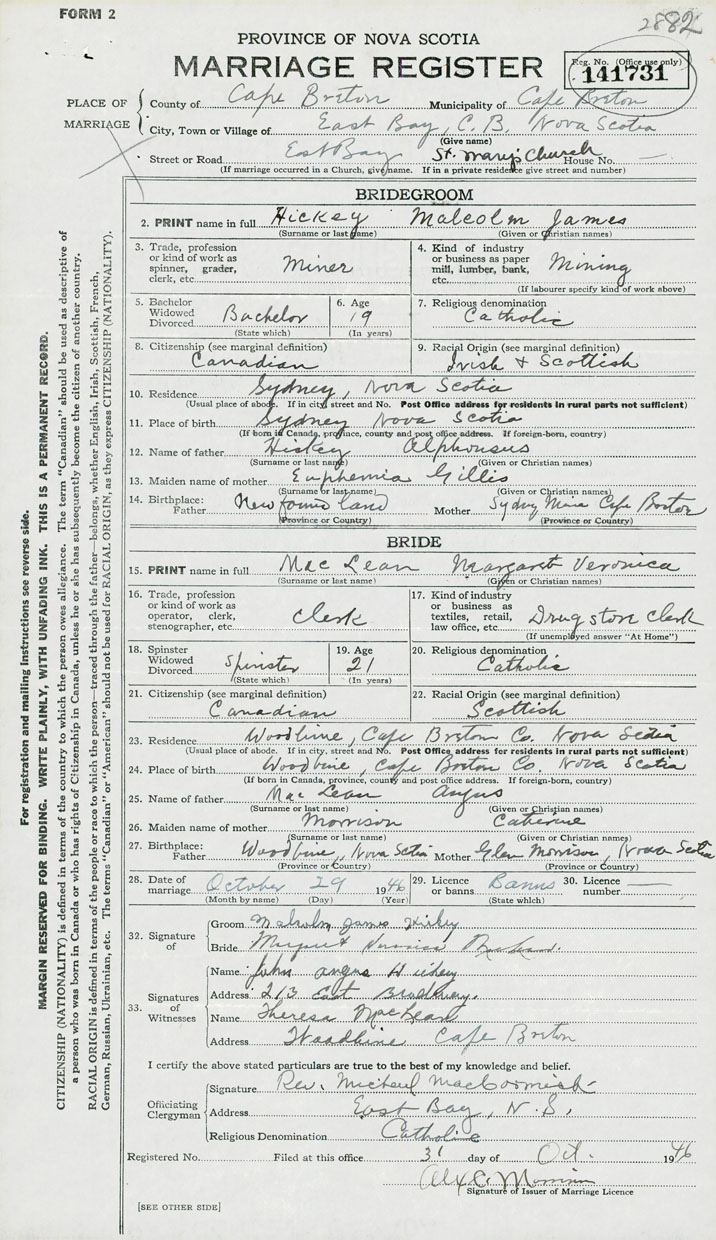 FORM 2
2882
PROVINCE OF NOVA SCOTIA
MARRIAGE REGISTER
Reg. No. (Office use only)
141731
PLACE OF MARRIAGE
County of Cape Breton Municipality of Cape Breton
City, Town or Village of East Bay, C. B. Nova Scotia
(Give name)
Street or Road East Bay St. Mary's Church House No. —
(If marriage occurred in a Church, give name. If in a private residence give street and number)
BRIDEGROOM
2. PRINT name in full Hickey Malcolm James
(Surname or last name) (Given or Christian names)
3. Trade, profession or kind of work as spinner, grader, clerk, etc. Miner
4. Kind of industry or business as paper mill, lumber, bank, etc. Mining
(If labourer specify kind of work above)
5. Bachelor Widowed Divorced Bachelor
(State which)
6. Age 19
(In years)
7. Religious denomination
Catholic
8. Citizenship (see marginal definition)
Canadian
9. Racial Origin (see marginal definition)
Irish & Scottish
10. Residence Sydney, Nova Scotia
(Usual place of abode. If in city, street and No. Post Office address for residents in rural parts not sufficient)
11. Place of birth Sydney Nova Scotia
(If born in Canada, province, county and post office address. If foreign-born, country)
12. Name of father Hickey Alphonsus
(Surname or last name) (Given or Christian names)
13. Maiden name of mother Euphemia Gillis
(Surname or last name) (Given or Christian names)
14. Birthplace: Father Newfoundland Mother Sydney Mines Cape Breton
(Province or Country) (Province or Country)
BRIDE
15. PRINT name in full Mac Lean Margaret Veronica
(Surname or last name) (Given or Christian names)
16. Trade, profession or kind of work as operator, clerk, stenographer, etc. Clerk
17. Kind of industry or business as textiles, retail, law office, etc. Drug store Clerk
(If unemployed answer "At Home")
18. Spinster Widowed Divorced Spinster
(State which)
19. Age 21
(In years)
20. Religious denomination
Catholic
21. Citizenship (see marginal definition)
Canadian
22. Racial Origin (see marginal definition)
Scottish
23. Residence Woodbine, Cape Breton Co. Nova Scotia
(Usual place of abode. If in city, street and No. Post Office address for residents in rural parts not sufficient)
24. Place of birth Woodbine, Cape Breton Co. Nova Scotia
(If born in Canada, province, county and post office address. If foreign-born, country)
25. Name of father Mac Lean Angus
(Surname or last name) (Given or Christian names)
26. Maiden name of mother Morrison Catherine
(Surname or last name) (Given or Christian names)
27. Birthplace: Father Woodbine, Nova Scotia Mother Glen Morrison, Nova Scotia
(Province or Country) (Province or Country)
28. Date of marriage October 29 1946
(Month by name) (Day) (Year)
29. Licence or banns Banns
(State which)
30. Licence number —
32. Signature of
Groom Malcolm James Hickey
Bride Margaret Veronica MacLean
33. Signatures of Witnesses
Name John Angus Hickey
Address 213 East Broadway.
Name Theresa MacLean
Address Woodbine Cape Breton
I certify the above stated particulars are true to the best of my knowledge and belief.
Officiating Clergyman
Signature Rev. Michael MacCormick
Address East Bay, N. S.
Religious Denomination Catholic
Registered No. Filed at this office 31 day of Oct. 1946
Alex C. Morrison
Signature of Issuer of Marriage Licence
[SEE OTHER SIDE]
For registration and mailing instructions see reverse side.
MARGIN RESERVED FOR BINDING. WRITE PLAINLY, WITH UNFADING INK. THIS IS A PERMANENT RECORD.
CITIZENSHIP (NATIONALITY) is defined in terms of the country to which the person owes allegiance. The term "Canadian" should be used as descriptive of
a person who was born in Canada or who has rights of Citizenship in Canada, unless he or she has subsequently become the citizen of another country.
RACIAL ORIGIN is defined in terms of the people or race to which the person—traced through the father—belongs, whether English, Irish, Scottish, French,
German, Russian, Ukrainian, etc. The terms "Canadian" or "American" should not be used for RACIAL ORIGIN, as they express CITIZENSHIP (NATIONALITY).